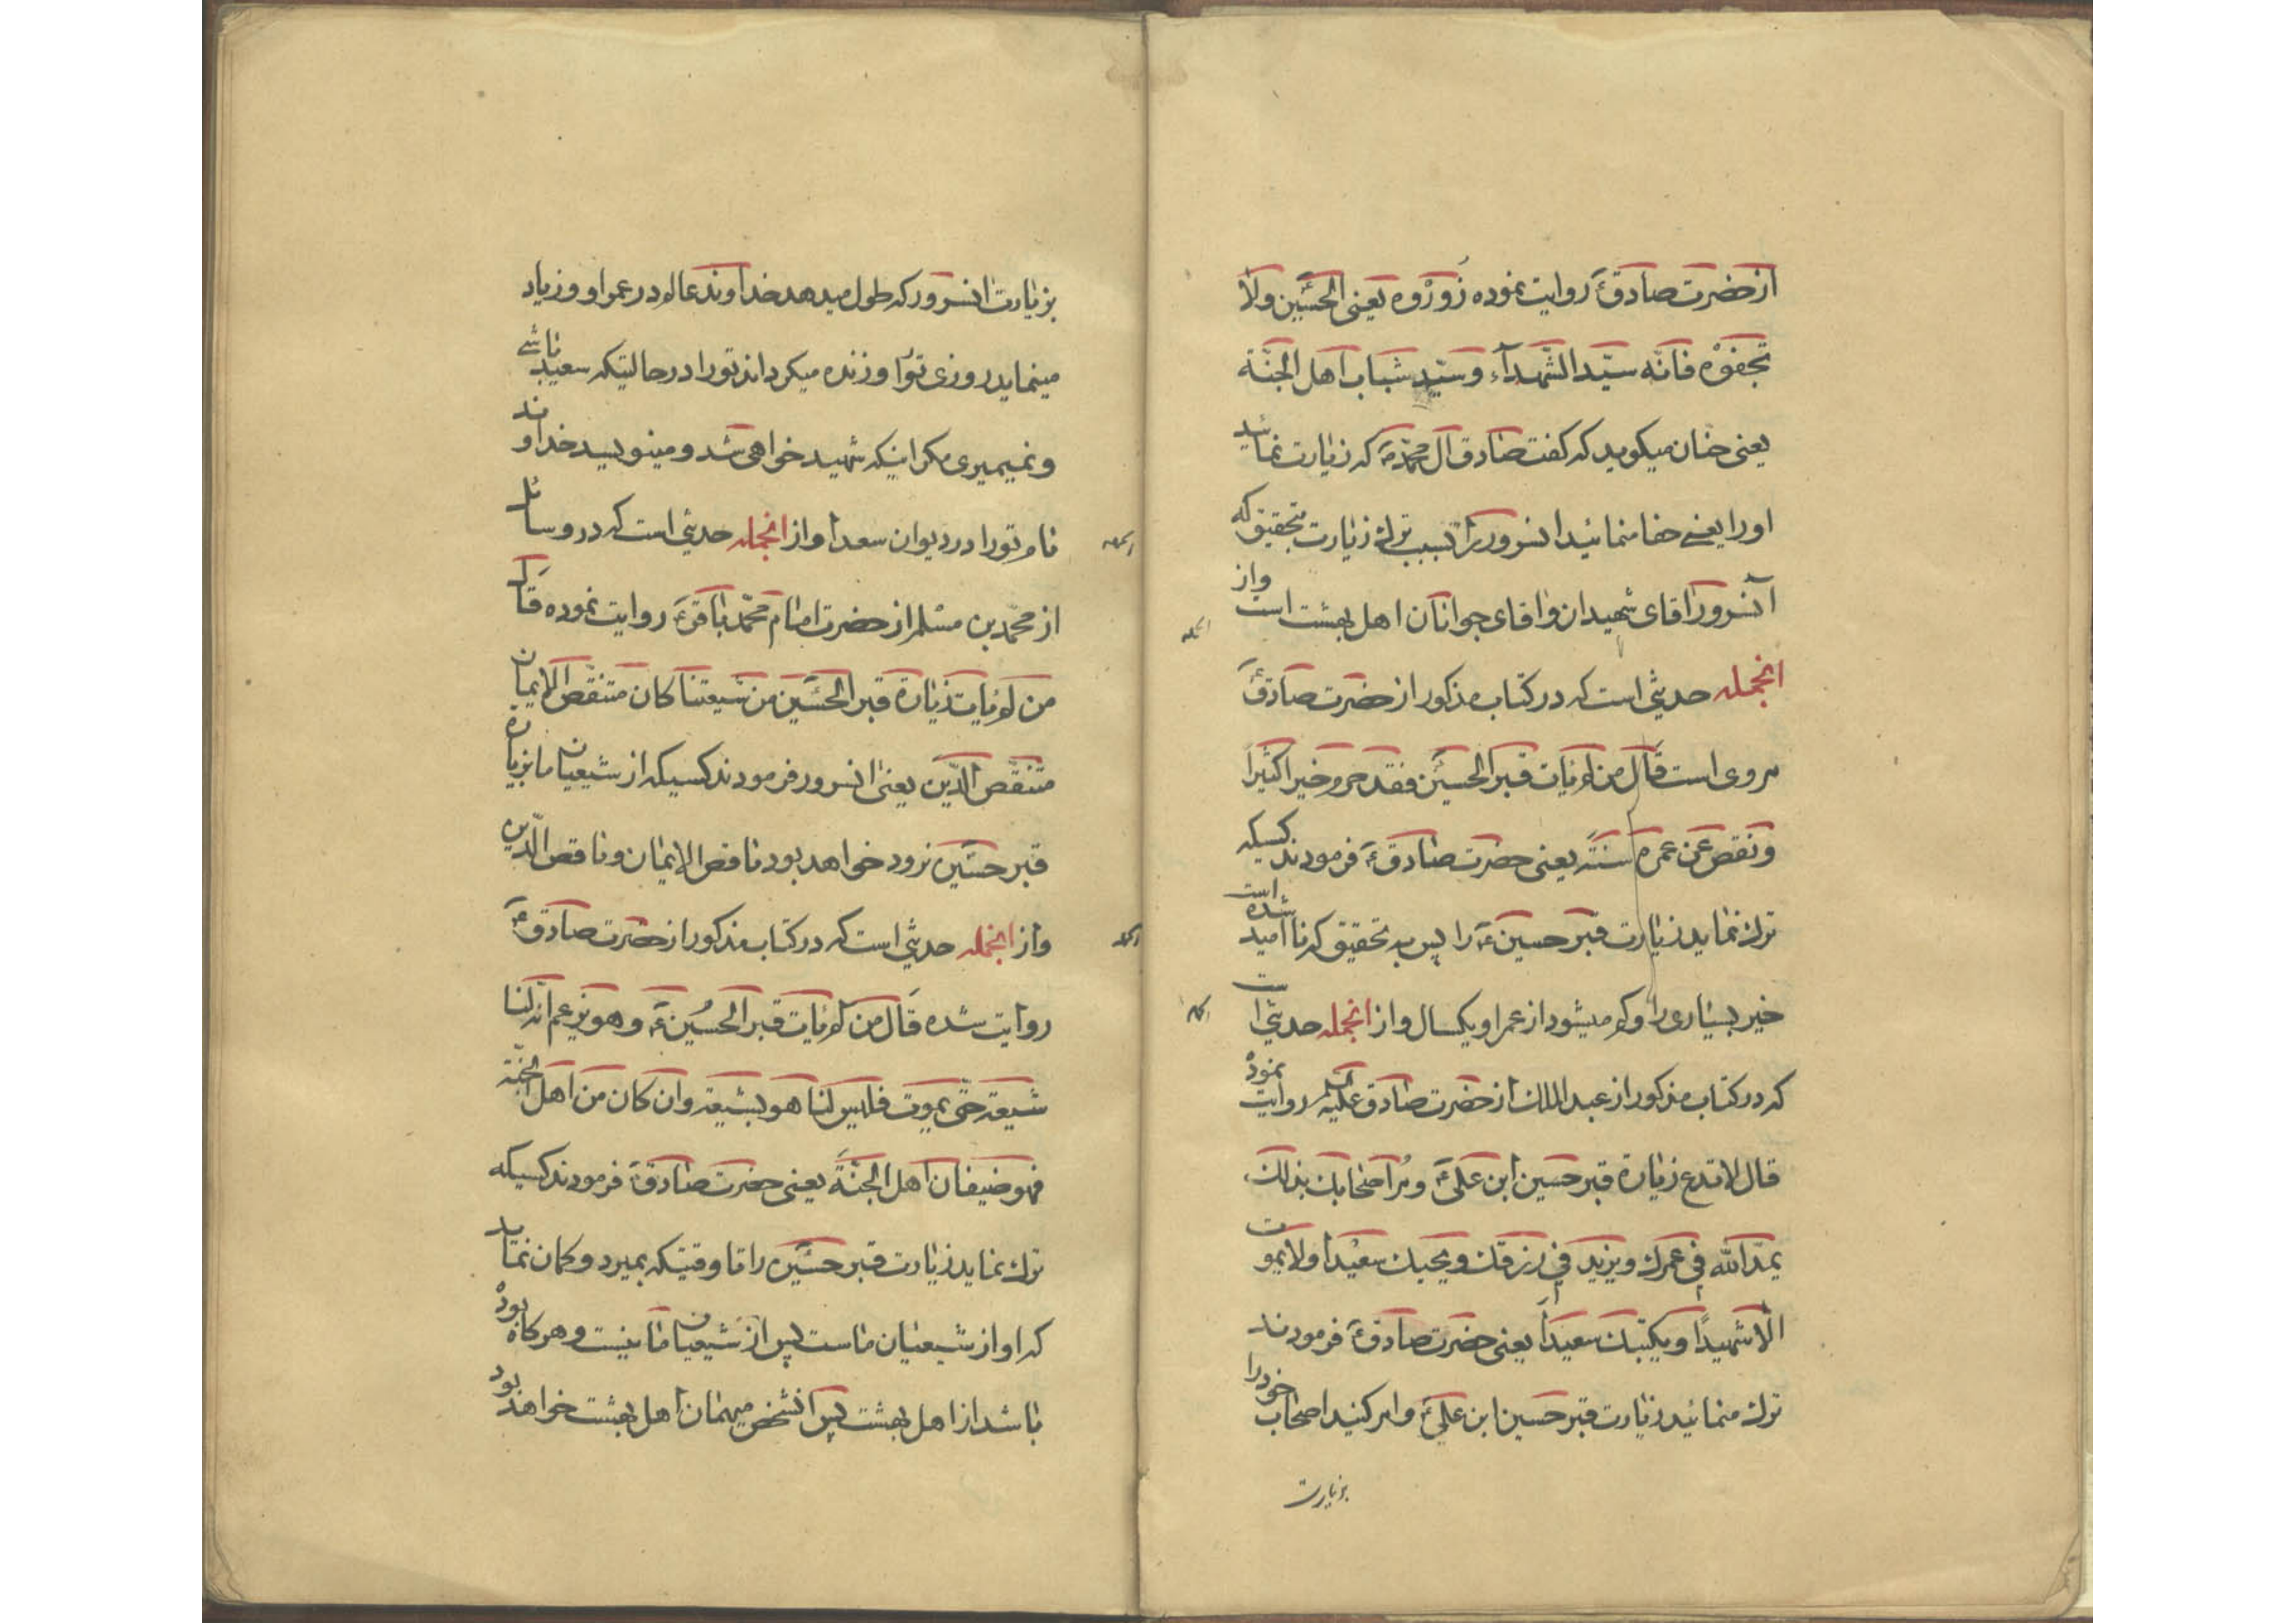 از حضرت صادقؑ روایت نموده زُورُوه یعنی الحسین ولا
تجفوْه فانّه سیّد الشّهدآء وسیّد شباب اهل الجنّة
یعنی حنان میکوید که کفت صادق آل محمدؐ که زیارت نمائید
اورا یعنے جفا منمائید انسرور را بسبب ترك زیارت بتحقیق که
آنسرور اقای شهیدان واقای جوانان اهل بهشت است واز
انجمله حدیثی است که در کتاب مذکور از حضرت صادقؑ
مروی است قال من لم یات قبر الحسین فقد حرم خیرا کثیرًا
ونقص عن عمره سنته یعنی حضرت صادقؑ فرمودند کسیکه
ترك نماید زیارت قبر حسینؑ را پس به تحقیق که نا امید شده است
خیر بسیاری را وکم میشود از عمر او یکسال واز انجمله حدیثی است
که در کتاب مذکور از عبد الملك از حضرت صادق علیه روایت نموده
قال لا تدع زیارة قبر حسین ابن علیؑ ومُر اصحابك بذلك
یمدّ الله فی عمرك ویزید فی رزقك ویحیك سعیدًا ولا یموت
الّا شهیدًا ویکتبك سعیدًا یعنی حضرت صادقؑ فرمودند
ترك منمائید زیارت قبر حسین ابن علیؑ وامر کنید اصحاب خود را
بزیارت
بزیارت انسرور که طول میدهد خداوند عالم در عمر او وزیاد
مینماید روزی تورا وزنده میکرداند تورا در حالتیکه سعید باشے
ونمیمیری مکر اینکه شهید خواهی شد ومینویسد خداوند
نام تورا در دیوان سعدا واز انجمله حدیثی است که در وسائل
از محمد بن مسلم از حضرت امام محمد باقرؑ روایت نموده قال
من لم یات زیارة قبر الحسین من شیعتنا کان متنقّص الایمان
متنقّص الدّین یعنی انسرور فرمودند کسیکه از شیعیان ما بزیارة
قبر حسین نرود خواهد بود ناقص الایمان وناقص الدّین
واز انجمله حدیثی است که در کتاب مذکور از حضرت صادقؑ
روایت شده قال من لم یات قبر الحسینؑ وهو یزعم انّه لنا
شیعة حتّی یموت فلیس لنا هو بشیعة وان کان من اهل الجنّة
فهو ضیفان اهل الجنّة یعنی حضرت صادقؑ فرمودند کسیکه
ترك نماید زیارت قبر حسین را تا وقتیکه بمیرد وکمان نماید
که او از شیعیان ماست پس از شیعیان ما نیست وهرکاه بوده
باشد از اهل بهشت پس انشخص میهمان اهل بهشت خواهد بود